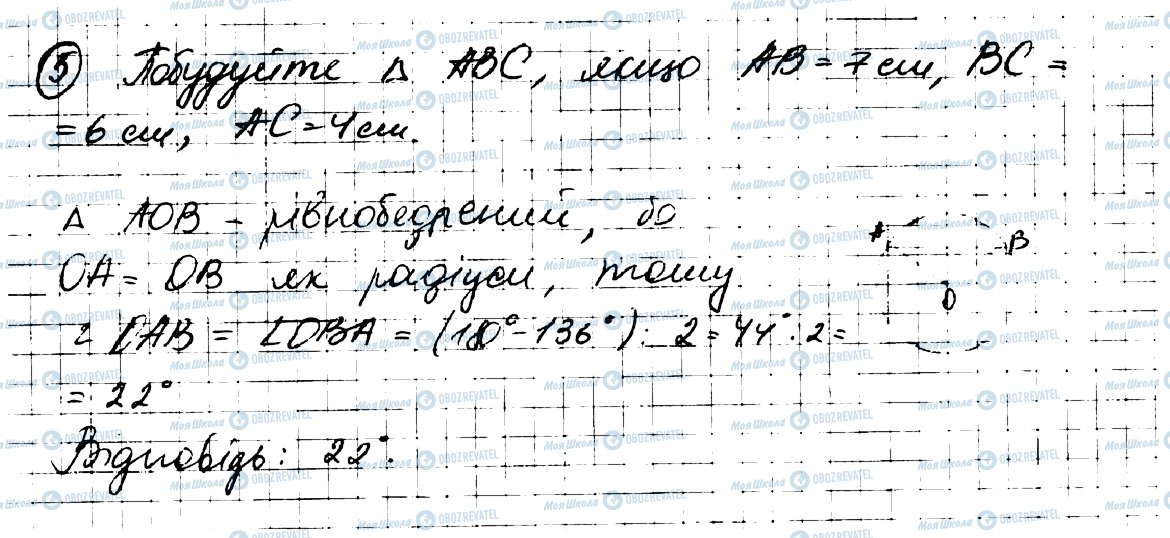 5 Побудуйте Δ ABC, якщо AB = 7 см, BC =
= 6 см, AC = 4 см.
Δ AOB – рівнобедрений, бо
OA = OB як радіуси, тому
∠OAB = ∠OBA = (180° - 136°) : 2 = 44° : 2 =
= 22°
Відповідь: 22°.
A
B
O
МояШкола OBOZREVATEL